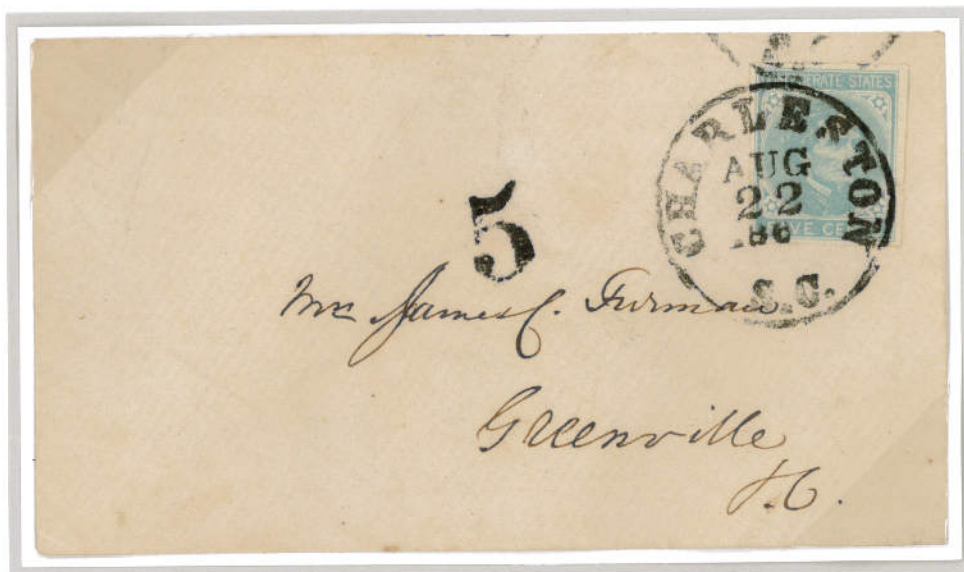 CONFEDERATE STATES
CHARLESTON
AUG
22
186
S.C.
FIVE CENTS
5
Mr James C. Furman
Greenville
S.C.